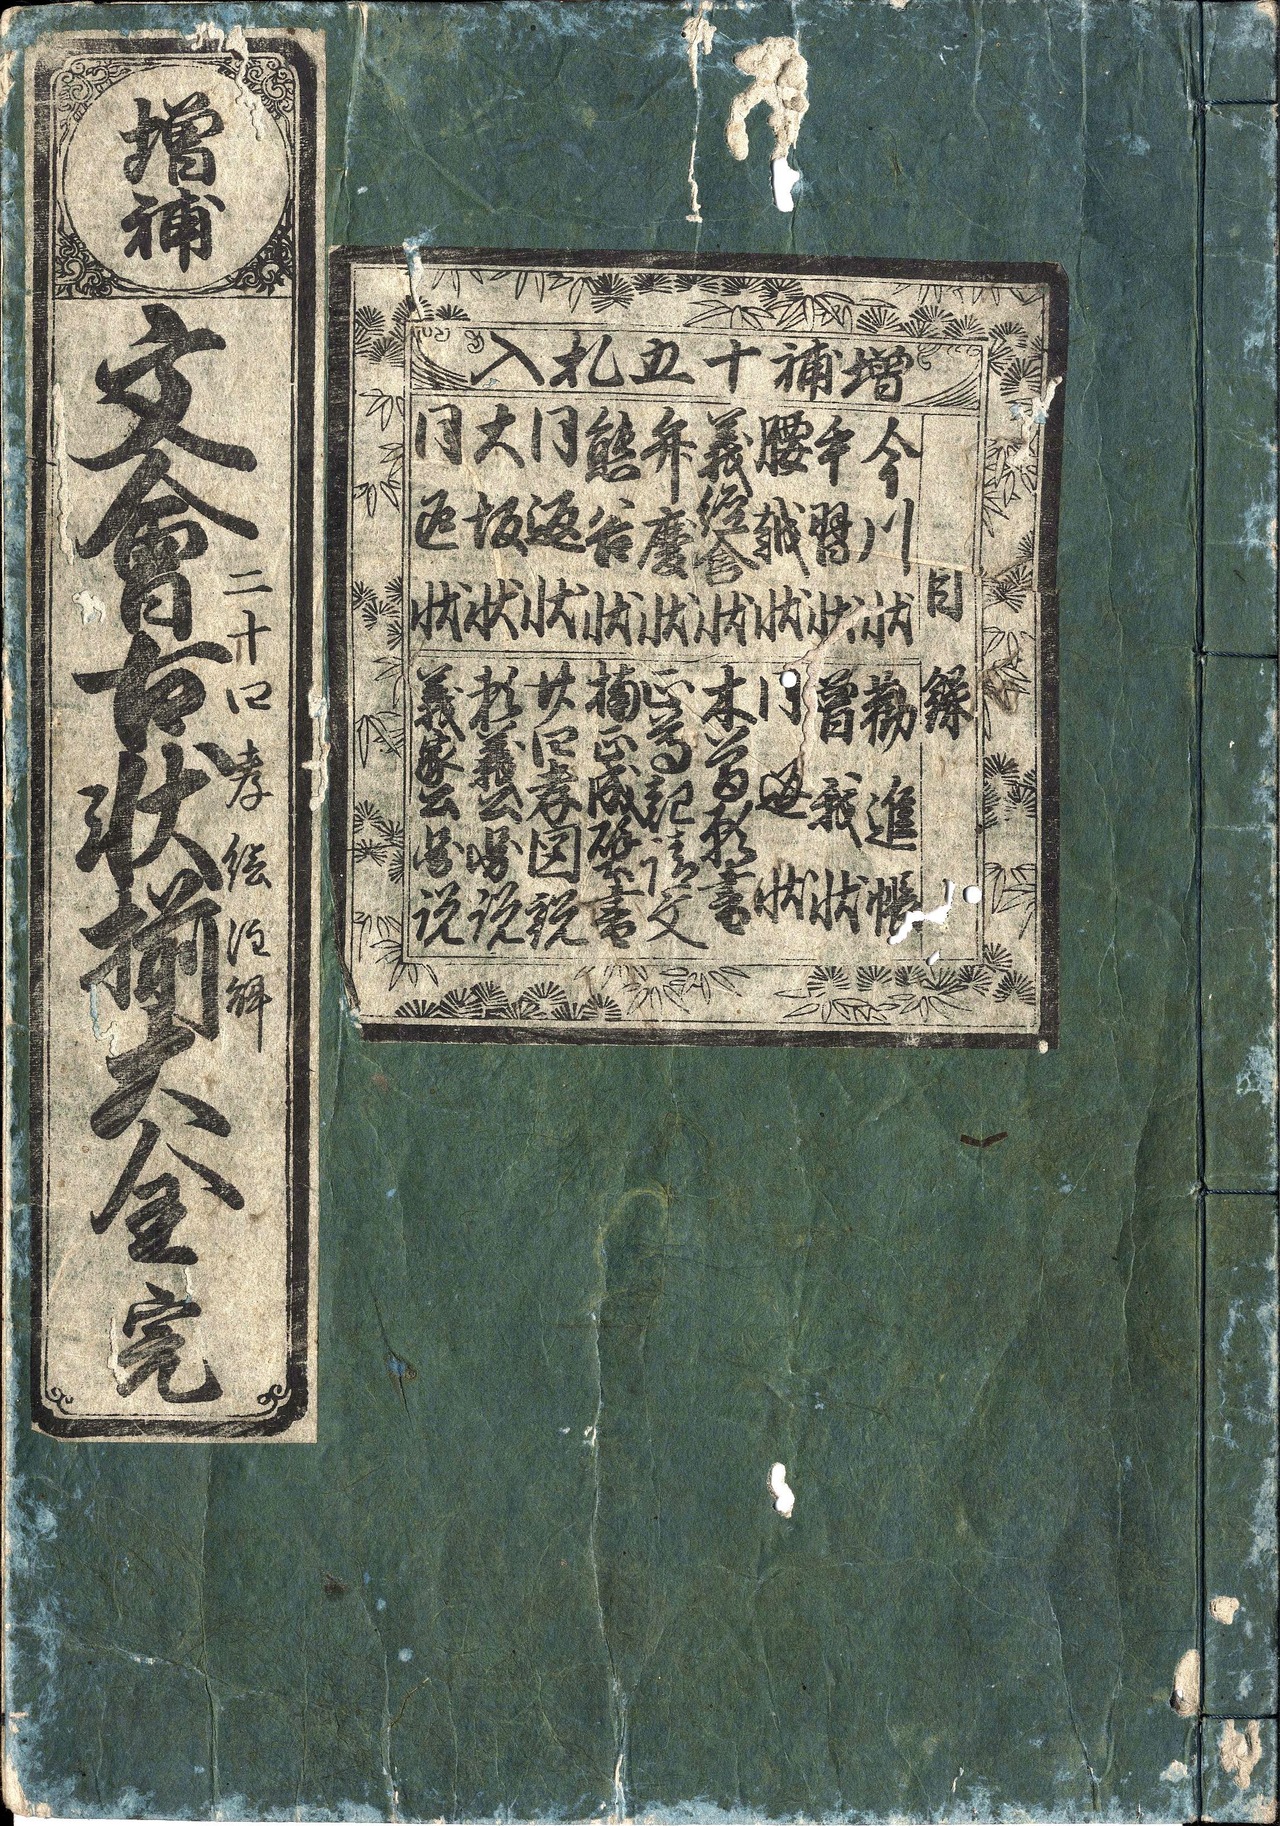 増補十五札入
目録
今川状
手習状
腰越状
義経含状
弁慶状
熊谷状
同返状
大坂状
同返状
勧進帳
曽我状
同返状
木曽願書
正尊起請文
楠正成壁書
廿四孝図説
頼義公略説
義家公略説
増補
二十四孝絵注解
文會古状揃大全 完